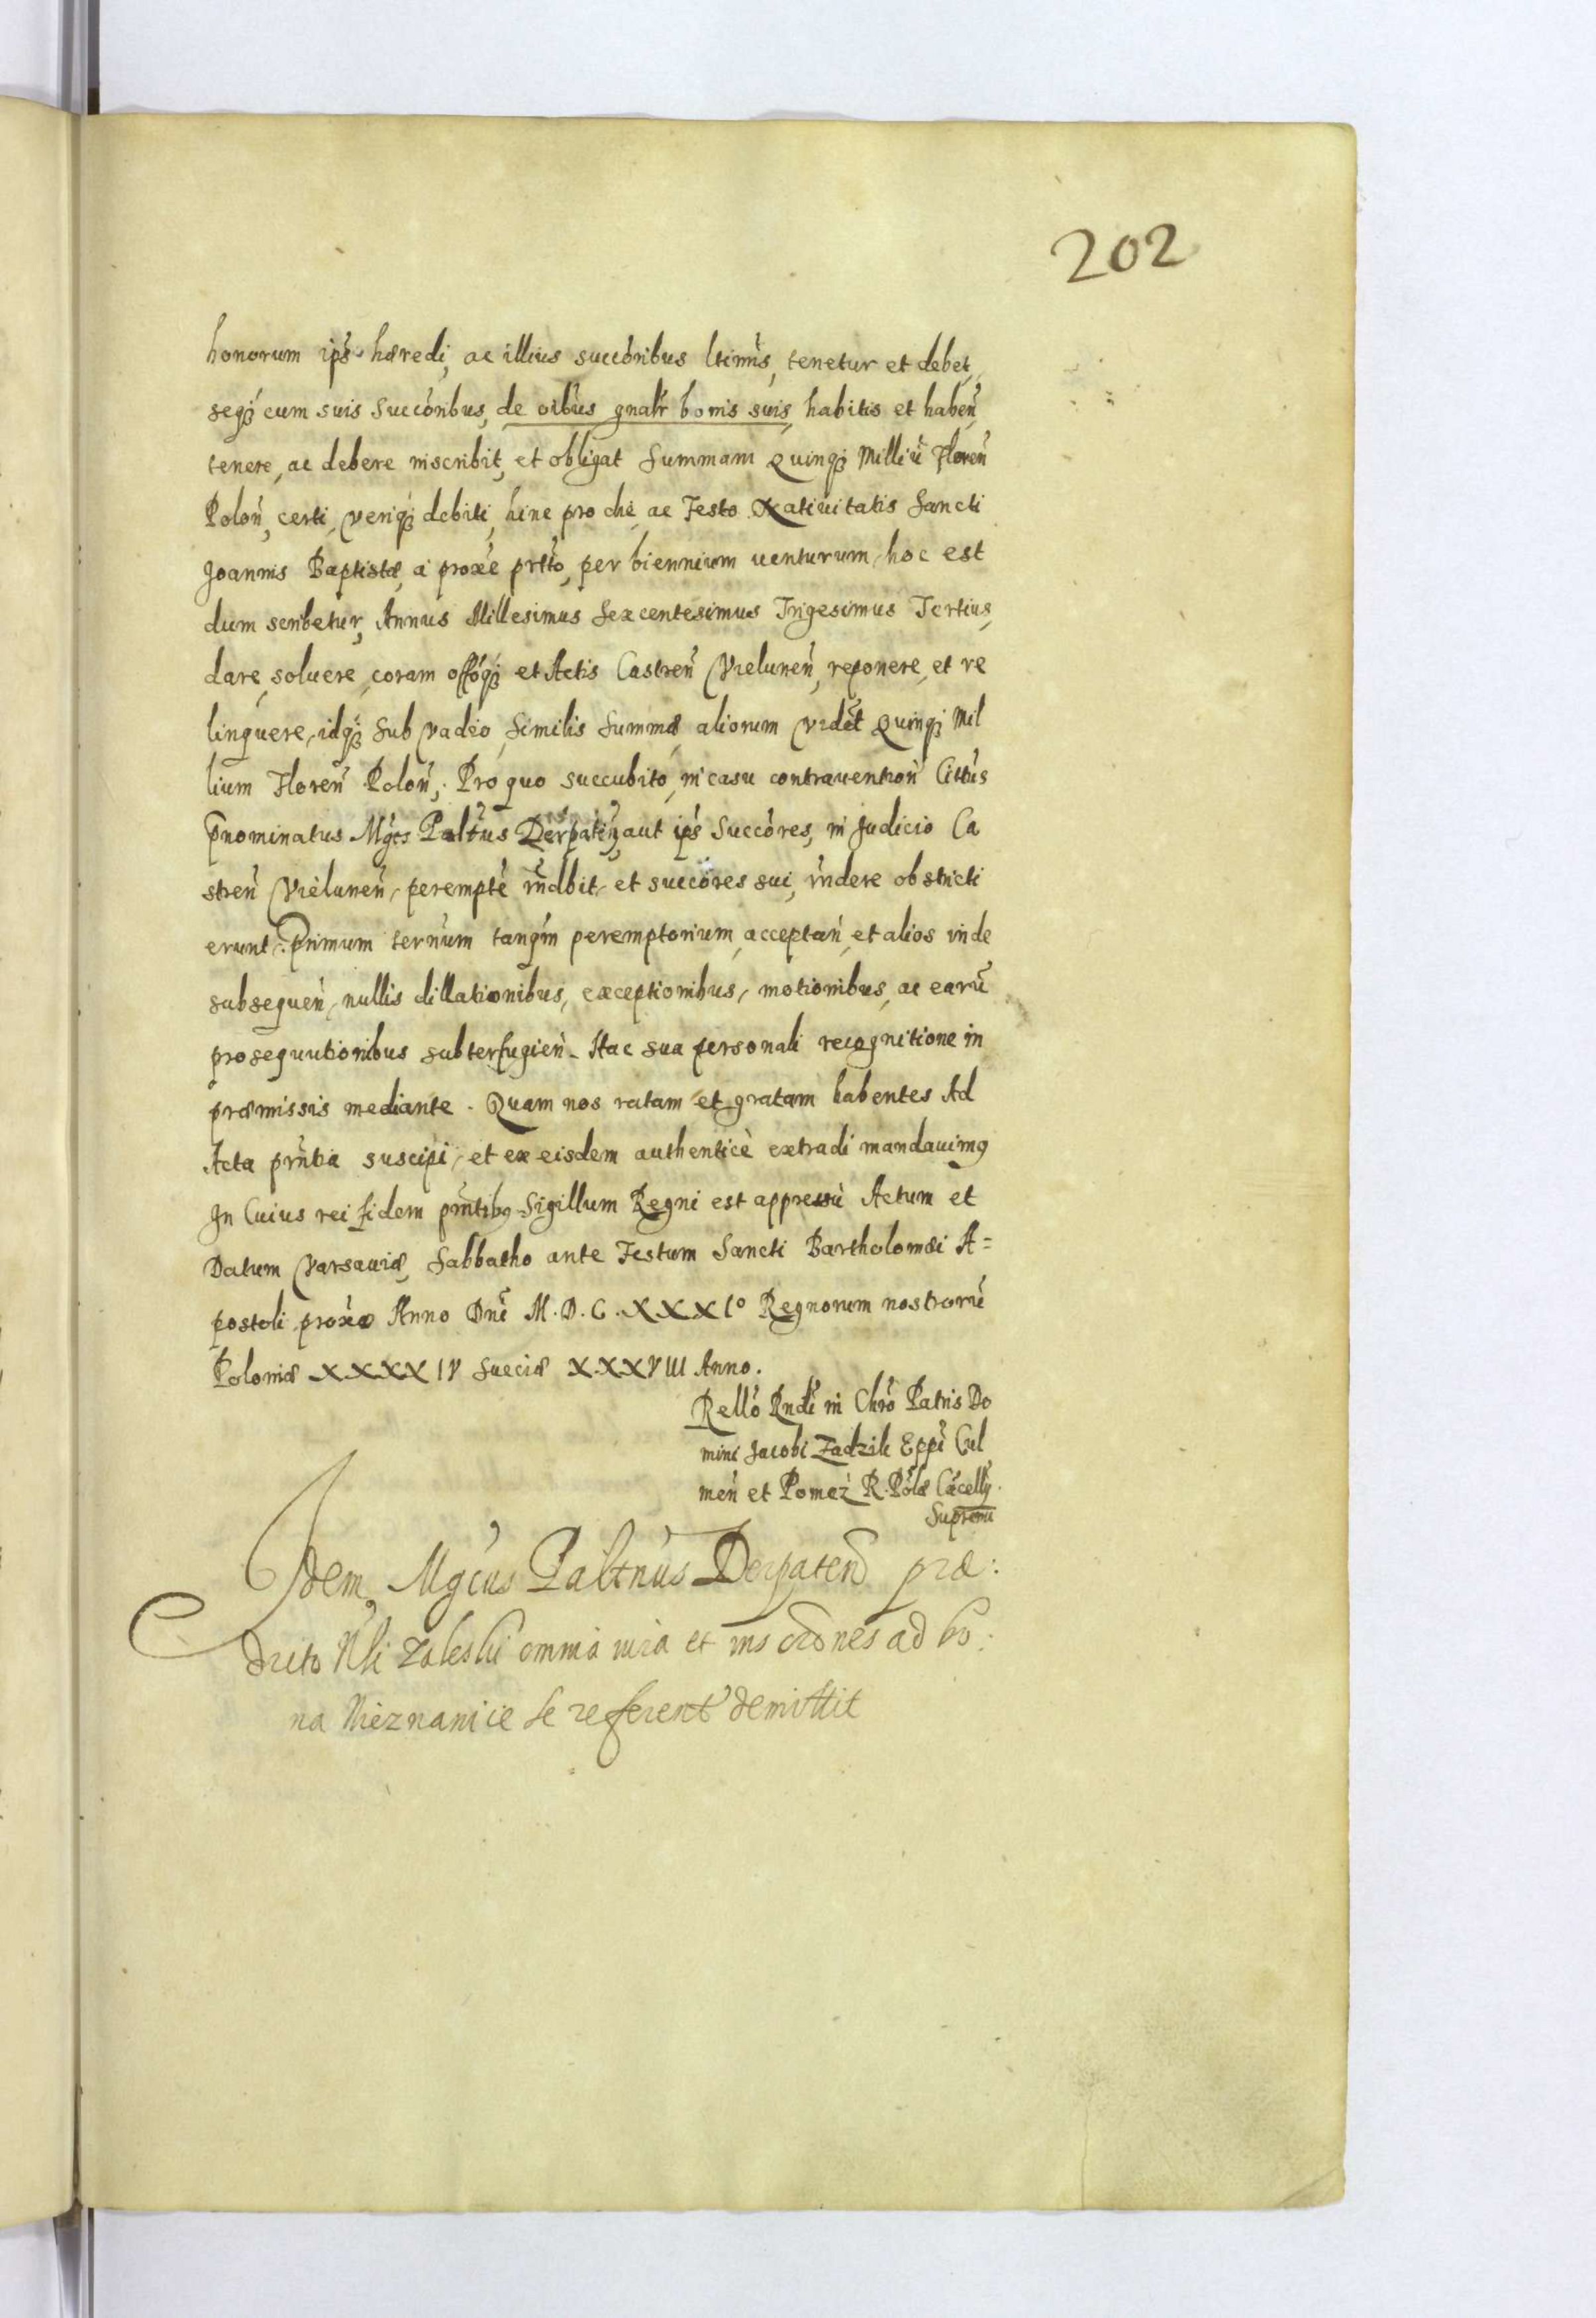 202
honorum ips hæredi, ac illius succoribus ltimis, tenetur et debet,
seq₃ cum suis succoribus, de oibus gnalr bonis suis, habitis et haben
tenere, ac debere inscribit, et obligat Summam Quinq₃ Milliu Floren
Polon, certi, veriq₃ debiti, hinc pro die, ac Festo Natiuitatis Sancti
Joannis Baptistæ, a proxe prito, per biennium venturum, hoc est
dum scribetur, Annus Millesimus Sexcentesimus Trigesimus Tertius,
dare, soluere, coram offoq₃ et Actis Castren Vielunen, reponere, et re
linquere, idq₃ sub vadio, similis summæ, aliorum videt Quinq₃ Mil
lium Floren Polon,. Pro quo succubito, in casu contrauention Cittus
Pnominatus Mgcs Paltnus Derpatien, aut ips Succores, in Judicio Ca
stren Vielunen, perempte rndbit, et succores sui, rndere obstricti
erunt. Primum ternum tanqm peremptorium, acceptan, et alios inde
subsequen, nullis dillationibus, exceptionibus, motionibus, ac earu
prosequutionibus subterfugien. Hac sua personali recognitione in
præmissis mediante. Quam nos ratam et gratam habentes Ad
Acta prntia suscipi, et ex eisdem authenticè extradi mandauimq
In Cuius rei fidem pntibq Sigillum Regni est appressu Actum et
Datum Varsauiæ, Sabbatho ante Festum Sancti Bartholomæi A=
postoli proxo Anno Dni M.D.C.XXXIº Regnorum nostroru
Poloniæ XXXXIV Sueciæ XXXVIII Anno.
Rello Rndi in Chro Patris Do
mini Jacobi Zadzik Eppi Cul
men et Pomez R. Polæ Cacellÿ
Supremi
Idem Mgcus Paltnus Derpaten præ:
dicto Nli Zaleski omnia iura et inscrones ad bo:
na Nieznanice se referent demittit